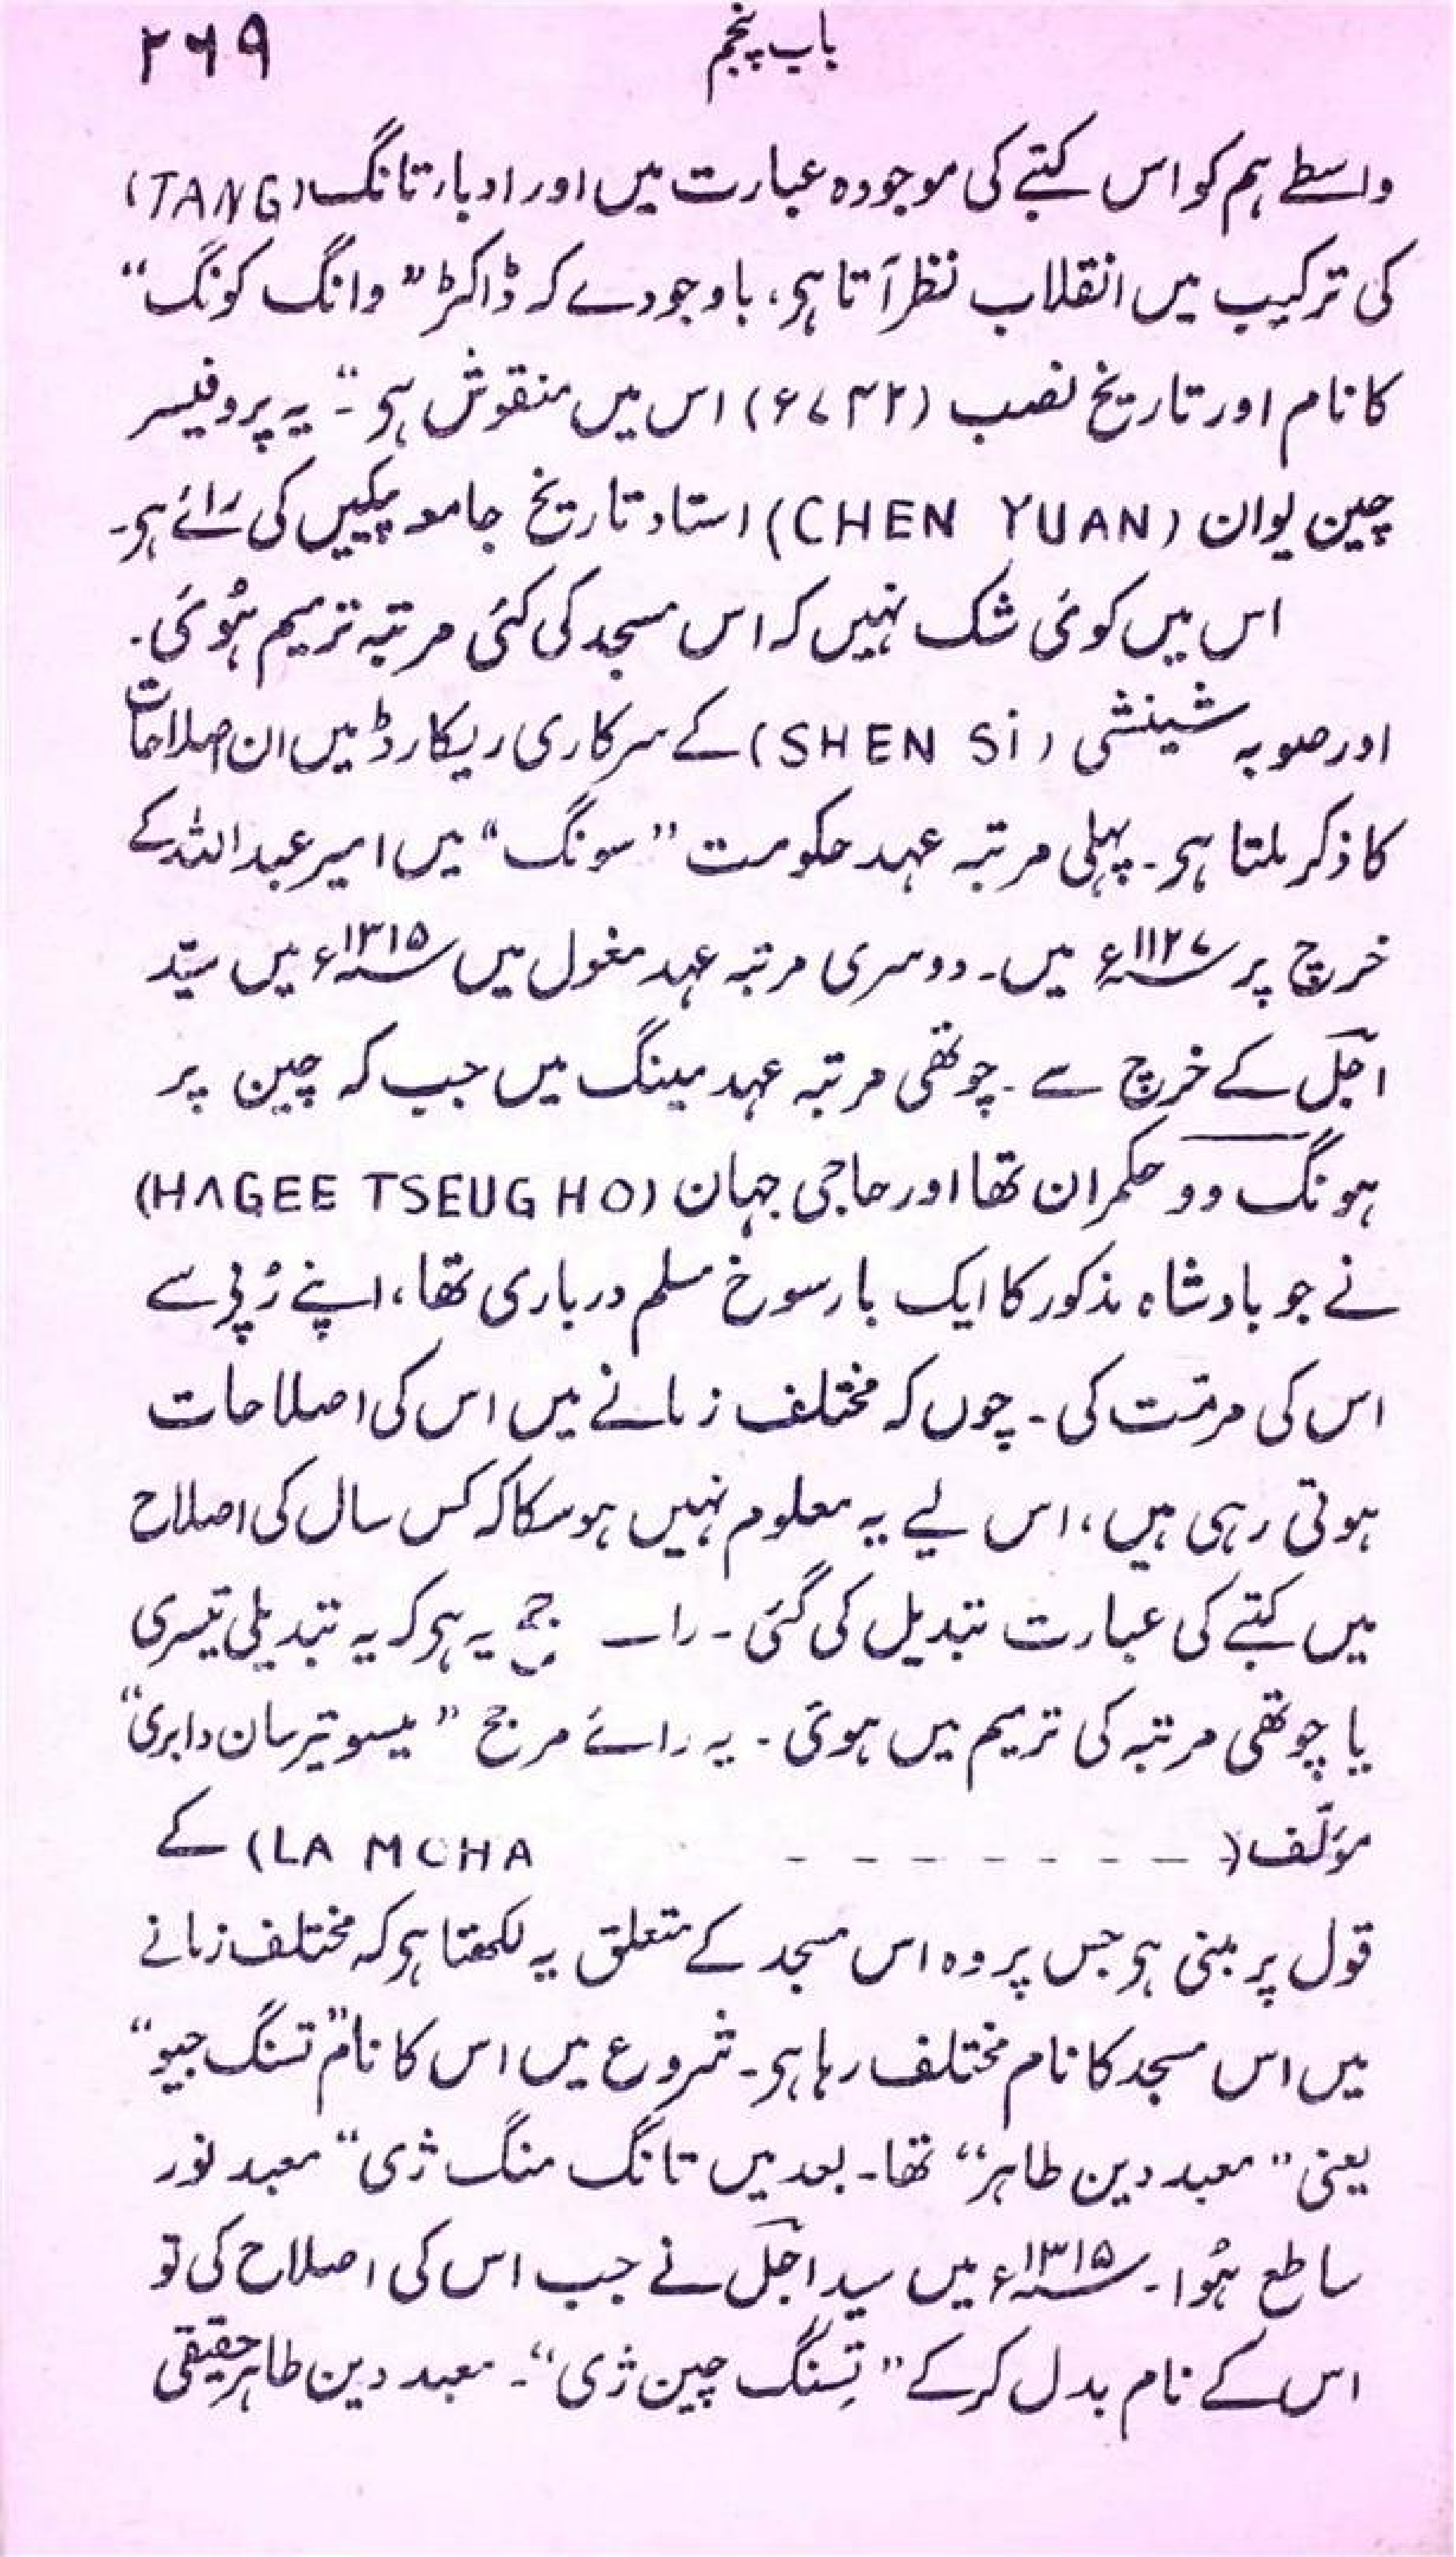 باب پنجم ۲۶۹
واسطے ہم کو اس کتبے کی موجودہ عبارت میں اور ادبار تانگ (TANG)
کی ترکیب میں انقلاب نظر آتا ہی، باوجودے کہ ڈاکٹر ”وانگ کونگ“
کا نام اور تاریخ نصب (۷۴۲ء) اس میں منقوش ہی“۔ یہ پروفیسر
چین یوان (CHEN YUAN) استاد تاریخ جامعہ پیکیں کی رائے ہی۔
اس میں کوئی شک نہیں کہ اس مسجد کی کئی مرتبہ ترمیم ہوئی۔
اور صوبہ شینشی (SHEN Si) کے سرکاری ریکارڈ میں ان اصلاحات
کا ذکر ملتا ہی۔ پہلی مرتبہ عہد حکومت ”سونگ“ میں امیر عبداللہ کے
خرچ پر ۱۱۲۷ء میں۔ دوسری مرتبہ عہد مغول میں ۱۳۱۵ء میں سیّد
اجل کے خرچ سے۔ چوتھی مرتبہ عہد مینگ میں جب کہ چین پر
ہونگ وو حکمران تھا اور حاجی جہان (HAGEE TSEUG HO)
نے جو بادشاہ مذکور کا ایک بارسوخ مسلم درباری تھا، اپنے رُپی سے
اس کی مرمّت کی۔ چوں کہ مختلف زمانے میں اس کی اصلاحات
ہوتی رہی ہیں، اس لیے یہ معلوم نہیں ہو سکا کہ کس سال کی اصلاح
میں کتبے کی عبارت تبدیل کی گئی۔ یہ ہی کہ یہ تبدیلی تیسری
یا چوتھی مرتبہ کی ترمیم میں ہوئی۔ یہ رائے مرجح ”میسو تیرسان دابری“
مؤلّف (- - - - - - - - LA MCHA) کے
قول پر مبنی ہی جس پر وہ اس مسجد کے متعلق یہ لکھتا ہی کہ مختلف زمانے
میں اس مسجد کا نام مختلف رہا ہی۔ شروع میں اس کا نام ”تسنگ جیو“
یعنی ”معبد دین طاہر“ تھا۔ بعد میں تانگ منگ ژی“ معبد نور
ساطع ہُوا۔ ۱۳۱۵ء میں سید اجل نے جب اس کی اصلاح کی تو
اس کے نام بدل کر کے ”تِسنگ چین ژی“۔ معبد دین طاہر حقیقی